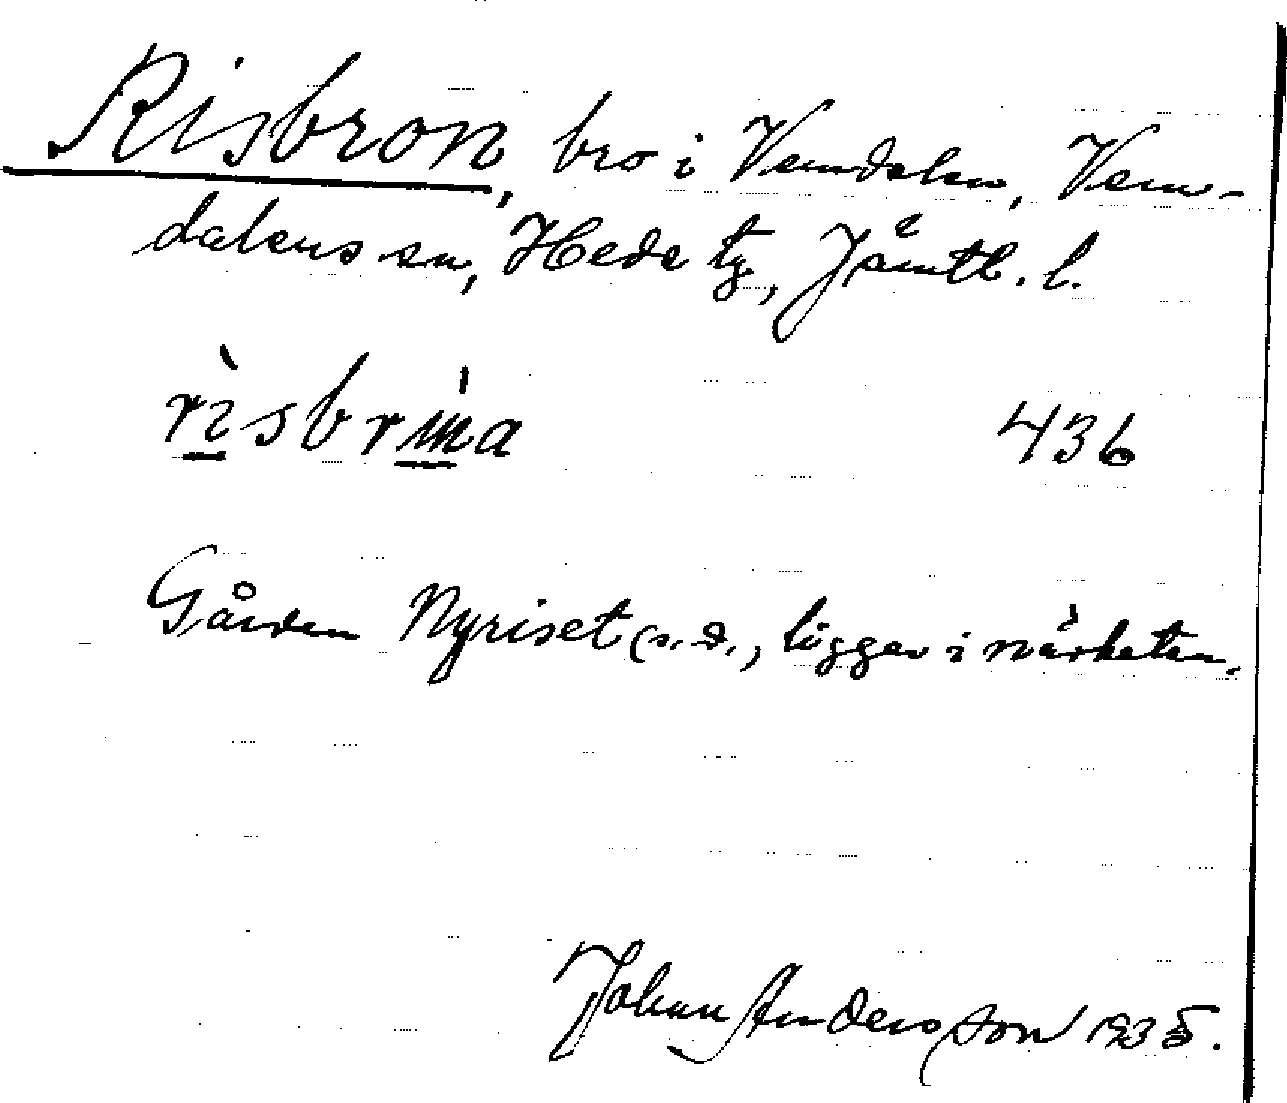 Risbron, bro i Vemdalen, Vem-
dalens sn, Hede tg, Jämtl. l.
436
Gården Nyriset (s.d., ligger i närheten.
Johan Andersson 1935.